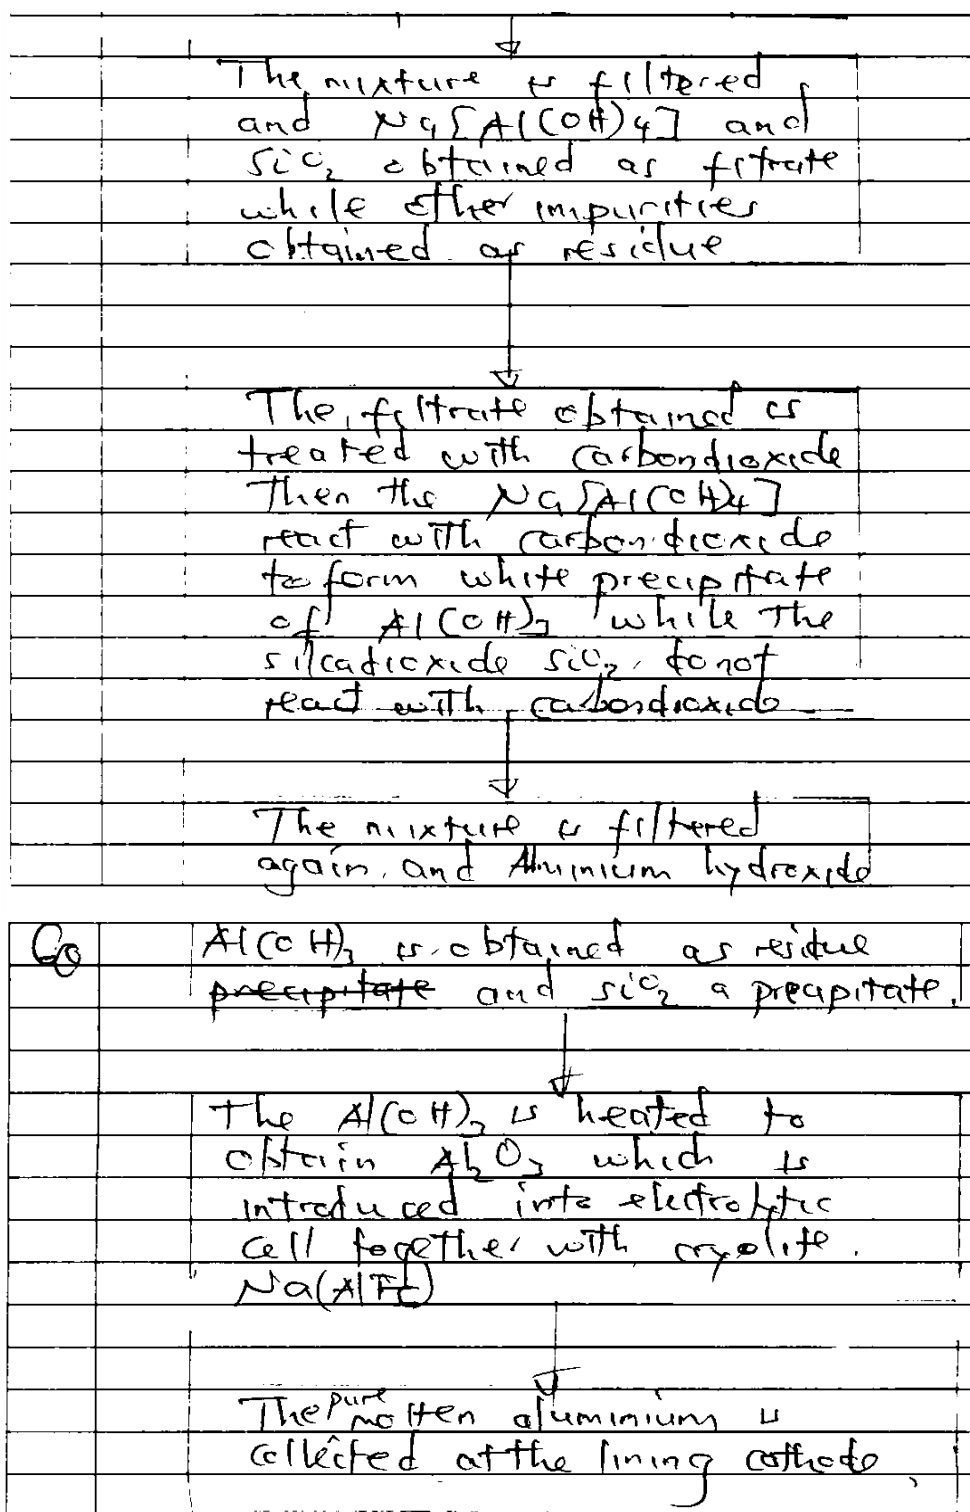 The mixture is filtered
and Na[Al(OH)4] and
SiO2 obtained as fitrate
while other impurities
obtained as residue
The filtrate obtained is
treated with carbondioxide
Then the Na[Al(OH)4]
react with carbondioxide
to form white precipitate
of Al(OH)3 while the
silcadioxide SiO2 do not
react with carbondioxide
The mixture is filtered
again and Aluminium hydroxide
Al(OH)3 is obtained as residue
precipitate and SiO2 a precipitate.
The Al(OH)3 is heated to
obtain Al2O3 which is
introduced into electrolytic
cell together with cryolite.
The pure molten aluminium is
collected at the lining cathode